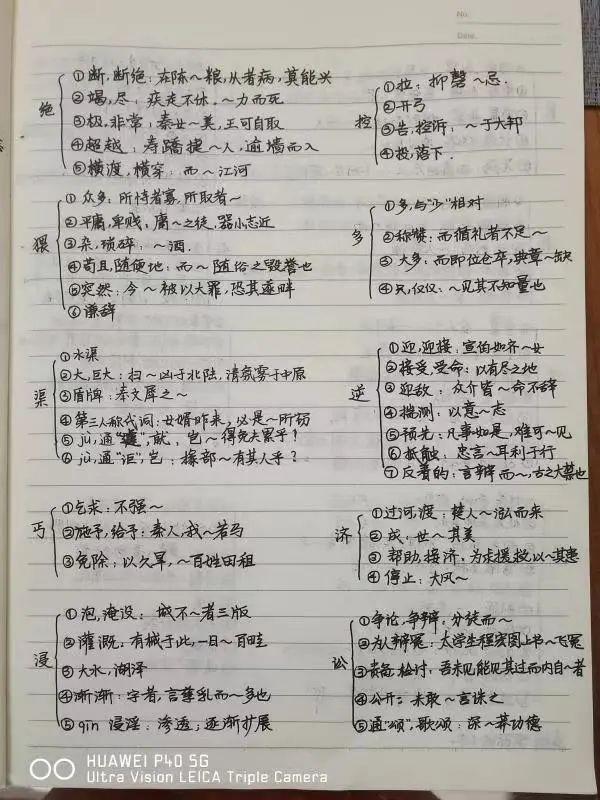 No.
Date.
绝
①断,断绝：在陈～粮,从者病,莫能兴
②竭,尽：疾走不休.～力而死
③极,非常：秦女～美,王可自取
④超越：寿蹻捷～人,逾墙而入
⑤横渡,横穿：而～江河
控
①拉：抑磬～忌.
②开弓
③告,控诉：～于大邦
④投,落下.
猥
①众多：所恃者寡,所取者～
②平庸,卑贱：庸～之徒,器小志近
③杂,琐碎：～酒.
④苟且,随便地：而～随俗之毁誉也
⑤突然：今～被以大罪,恐其遂畔
⑥谦辞
多
①多,与"少"相对
②称赞：而循礼者不足～
③大多：而即位仓卒,典章～缺
④只,仅仅：～见其不知量也
渠
①水渠
②大,巨大：扫～凶于北陆,清氛雾于中原
③盾牌：奉文犀之～
④第三人称代词：女婿昨来,必是～所窃
⑤jù,通"遽",就：岂～得免夫累乎？
⑥jù,通"讵",岂：掾部～有其人乎？
逆
①迎,迎接：宣伯如齐～女
②接受,受命：以有尽之地
③迎敌：众介皆～命不辞
④揣测：以意～志
⑤预先：凡事如是,难可～见
⑥抵触：忠言～耳利于行
⑦反着的：言辩而～,古之大禁也
丐
①乞求：不强～
②施予,给予：秦人,我～若马
③免除：以久旱,～百姓田租
济
①过河,渡：楚人～泓而来
②成：世～其美
③帮助,接济：为求援救,以～其患
④停止：大风～
浸
①泡,淹没：城不～者三版
②灌溉：有械于此,一日～百畦
③大水,湖泽
④渐渐：字者,言孳乳而～多也
⑤qīn 浸淫：渗透；逐渐扩展
讼
①争论,争辩：分徒而～
②为人辩冤：太学生程宏图上书～飞冤
③责备,检讨：吾未见能见其过而内自～者
④公开：未敢～言诛之
⑤通"颂",歌颂：深～莽功德
HUAWEI P40 5G
Ultra Vision LEICA Triple Camera